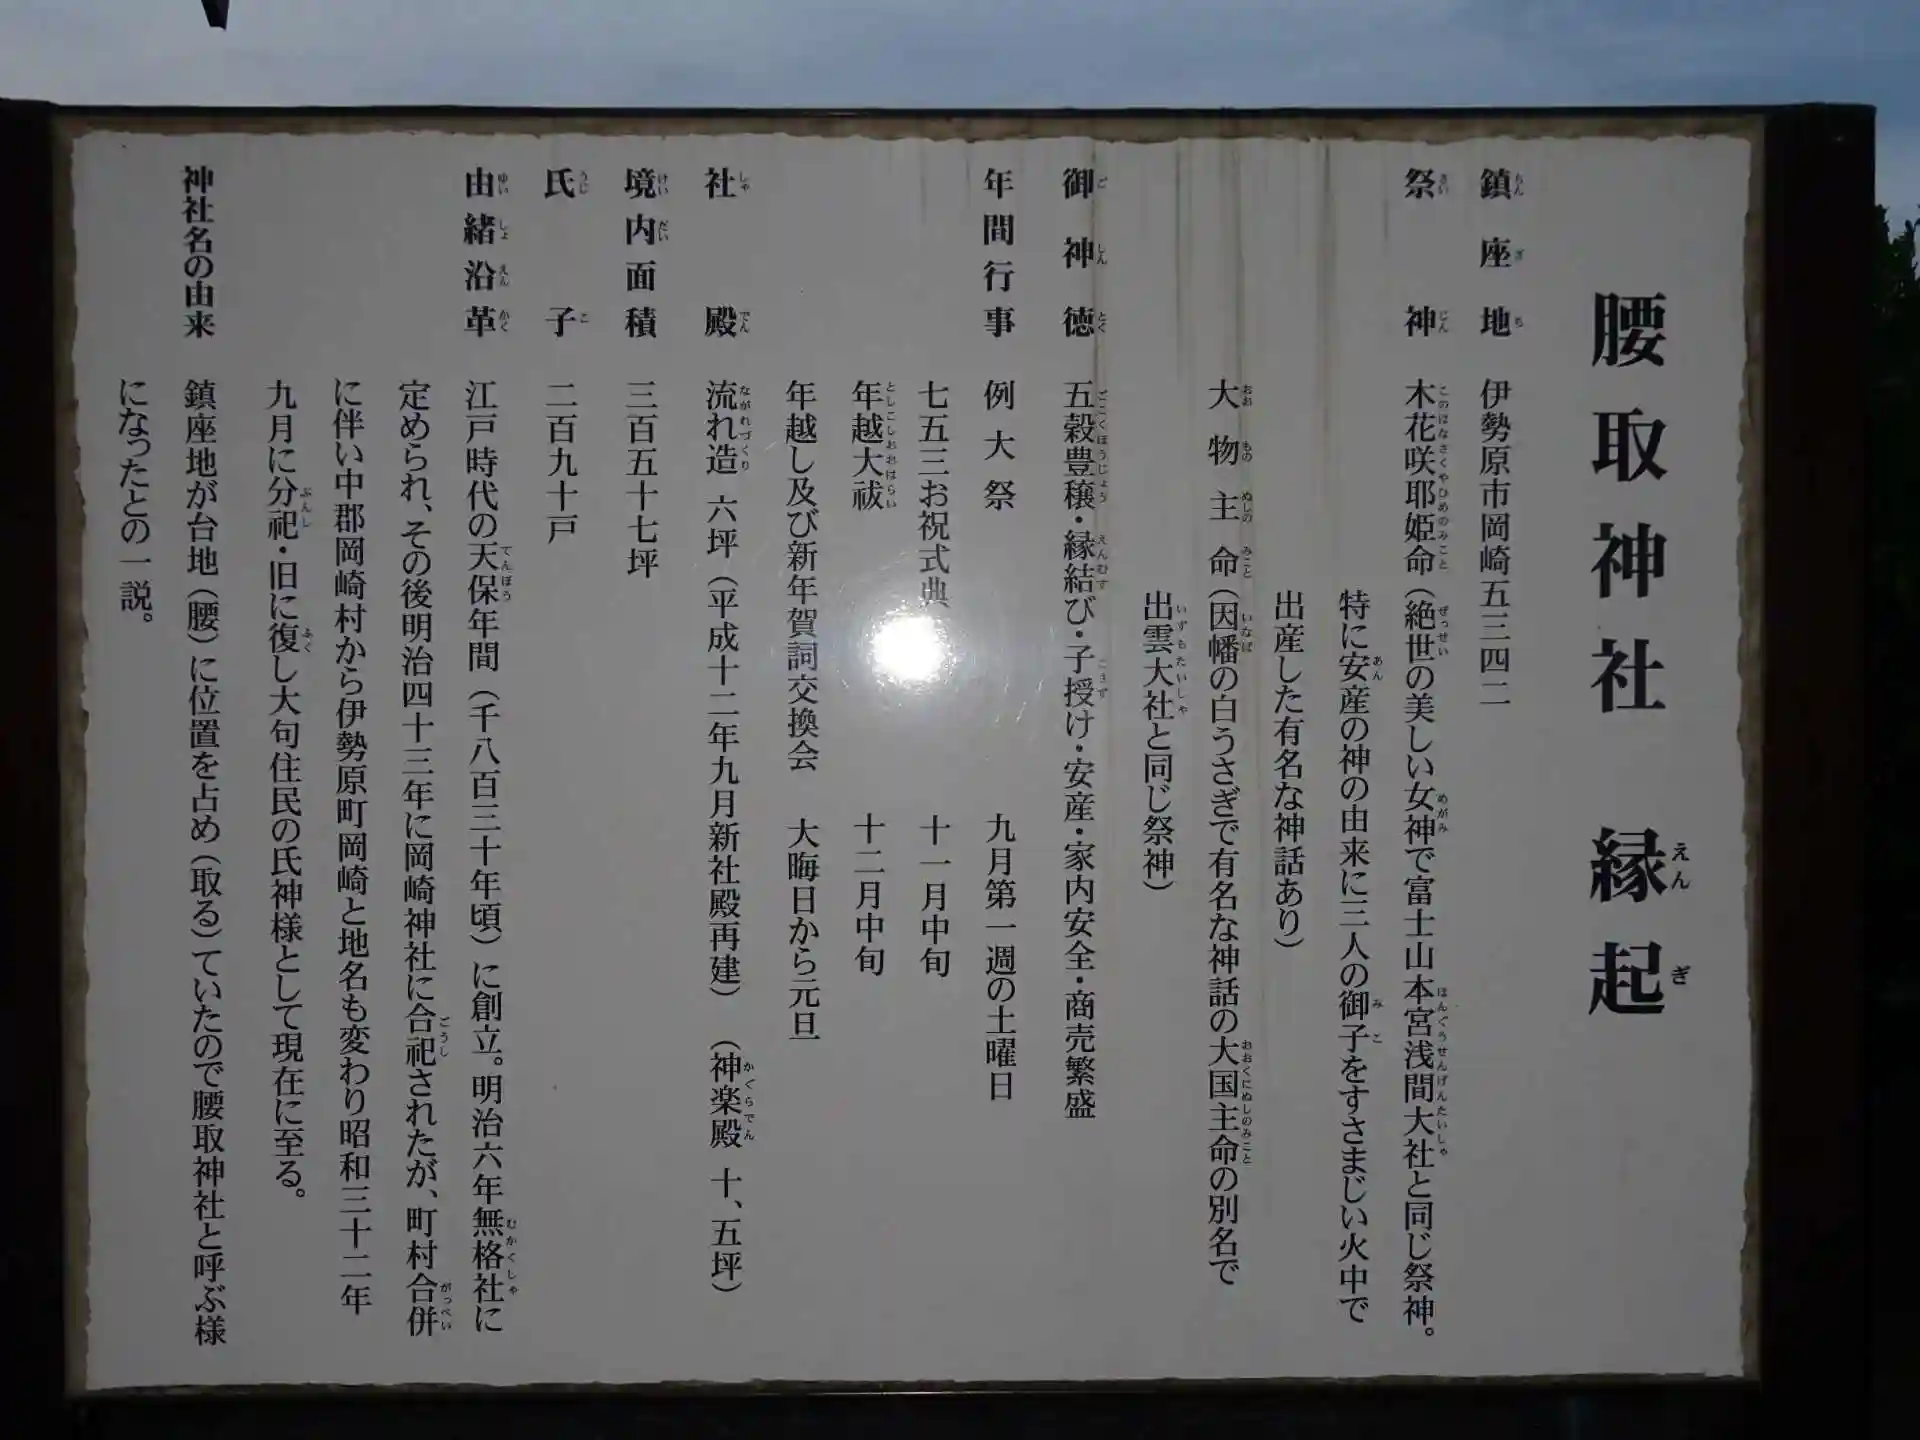 腰取神社 縁起
鎮座地 伊勢原市岡崎五三四二
祭神 木花咲耶姫命(絶世の美しい女神で富士山本宮浅間大社と同じ祭神。
特に安産の神の由来に三人の御子をすさまじい火中で
出産した有名な神話あり)
大物主命(因幡の白うさぎで有名な神話の大国主命の別名で
出雲大社と同じ祭神)
御神徳 五穀豊穣・縁結び・子授け・安産・家内安全・商売繁盛
年間行事 例大祭 九月第一週の土曜日
七五三お祝式典 十一月中旬
年越大祓 十二月中旬
年越し及び新年賀詞交換会 大晦日から元旦
社殿 流れ造 六坪(平成十二年九月新社殿再建)(神楽殿 十、五坪)
境内面積 三百五十七坪
氏子 二百九十戸
由緒沿革 江戸時代の天保年間(千八百三十年頃)に創立。明治六年無格社に
定められ、その後明治四十三年に岡崎神社に合祀されたが、町村合併
に伴い中郡岡崎村から伊勢原町岡崎と地名も変わり昭和三十二年
九月に分祀・旧に復し大句住民の氏神様として現在に至る。
神社名の由来 鎮座地が台地(腰)に位置を占め(取る)ていたので腰取神社と呼ぶ様
になったとの一説。